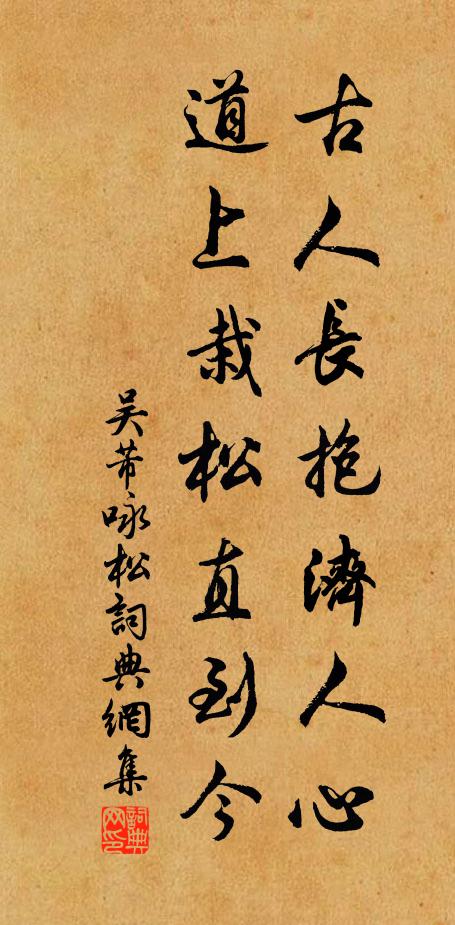 古人長抱濟人心
道上栽松直到今
吴芾咏松詞典網集
詞典網印